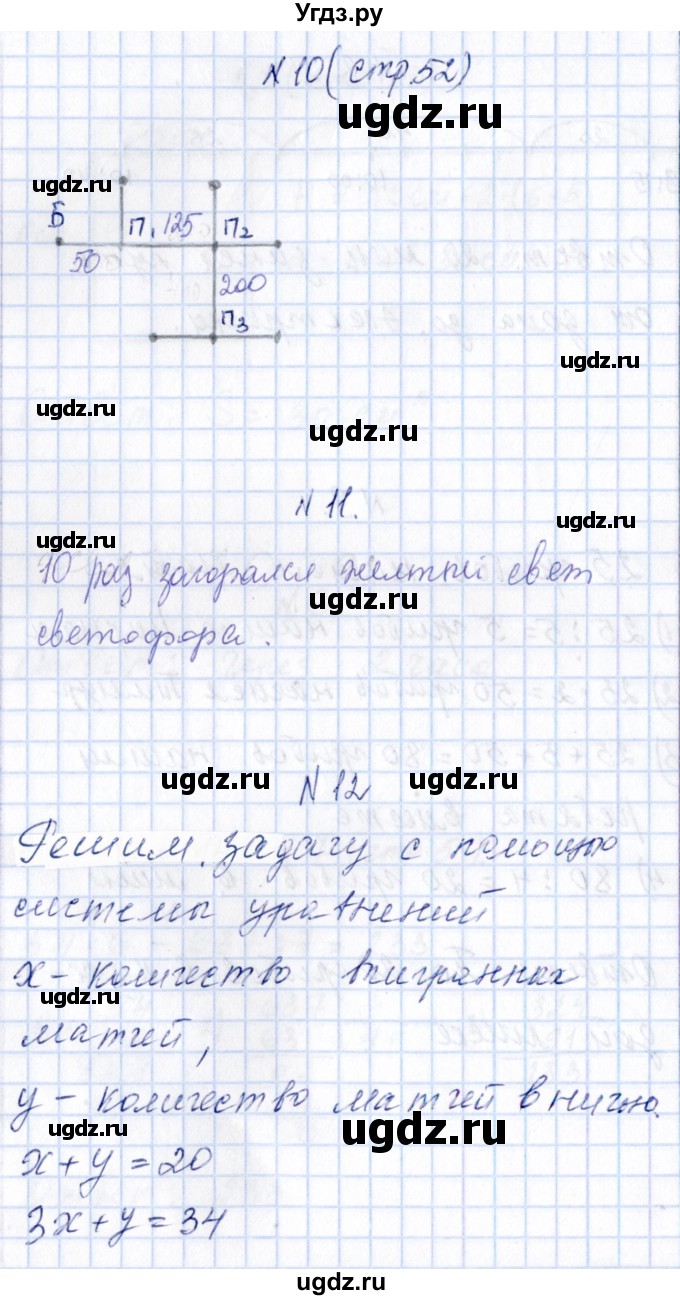 Угдз.ру
N 10 (стр 52)
ugdz.ru
ugdz.ru
Б П1 125 П2
50
200
П3
ugdz.ru
ugdz.ru
ugdz.ru
N 11.
ugdz.ru
ugdz.ru
10 раз загорался желтый свет
ugdz.ru
светофора.
ugdz.ru N 12 ugdz.ru
Решим задачу с помощью
системы уравнений
x - количество выигранных
ugdz.ru
матчей,
y - количество матчей вничью.
ugdz.ru ugdz.ru
x + y = 20
3x + y = 34
ugdz.ru